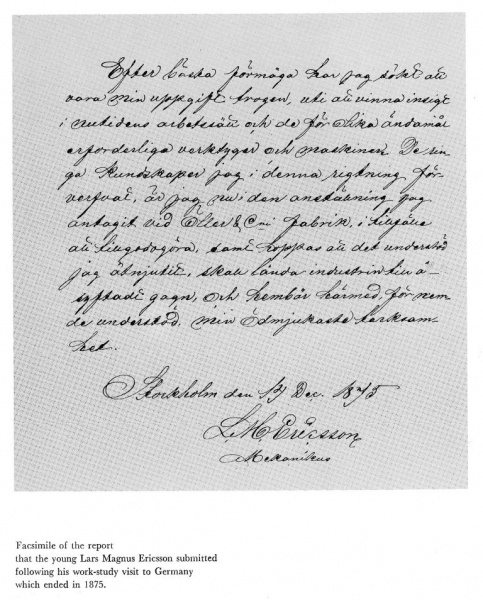 Efter bästa förmåga har jag sökt att
vara min uppgift trogen, uti att vinna insigt
i nutidens arbetssätt och de för olika ändamål
erforderliga verktyger och maskiner. De rin-
ga kunskaper jag i denna rigtning för-
verfvat, är jag nu i den anställning jag
antagit vid Öller & Cni fabrik, i tillfälle
att tillgodogöra, samt hoppas att det understöd
jag åtnjutit, skall lända industrin till å-
syftadt gagn, och hembär härmed, för nem
de understöd, min ödmjukaste tacksam-
het.
Stockholm den Dec. 1875
L. M. Ericsson
Mekanikus
Facsimile of the report
that the young Lars Magnus Ericsson submitted
following his work-study visit to Germany
which ended in 1875.